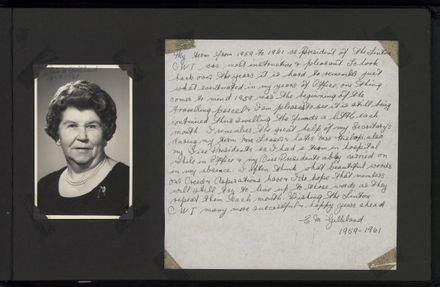 My term from 1959 to 1961 as President of the Linton
CWI was most instructive & pleasant. To look
back over the years it is hard to remember just
what eventuated in my years of Office, one thing
comes to mind 1959 was the beginning of the
travelling parcel & I'm pleased to see it is still being
continued thus swelling the funds a little each
month. I remember the great help of my Secretary's
during my term Mrs & later Mrs also
my Vice Presidents as I had a term in hospital
while in Office & my Vice Presidents ably carried on
in my absence. I often think what beautiful words
our Creed & Aspirations have & I do hope that members
will still try to live up to those words as they
repeat them each month. Wishing the Linton
CWI many more successful & happy years ahead
- E. M. Gilliland
1959-1961